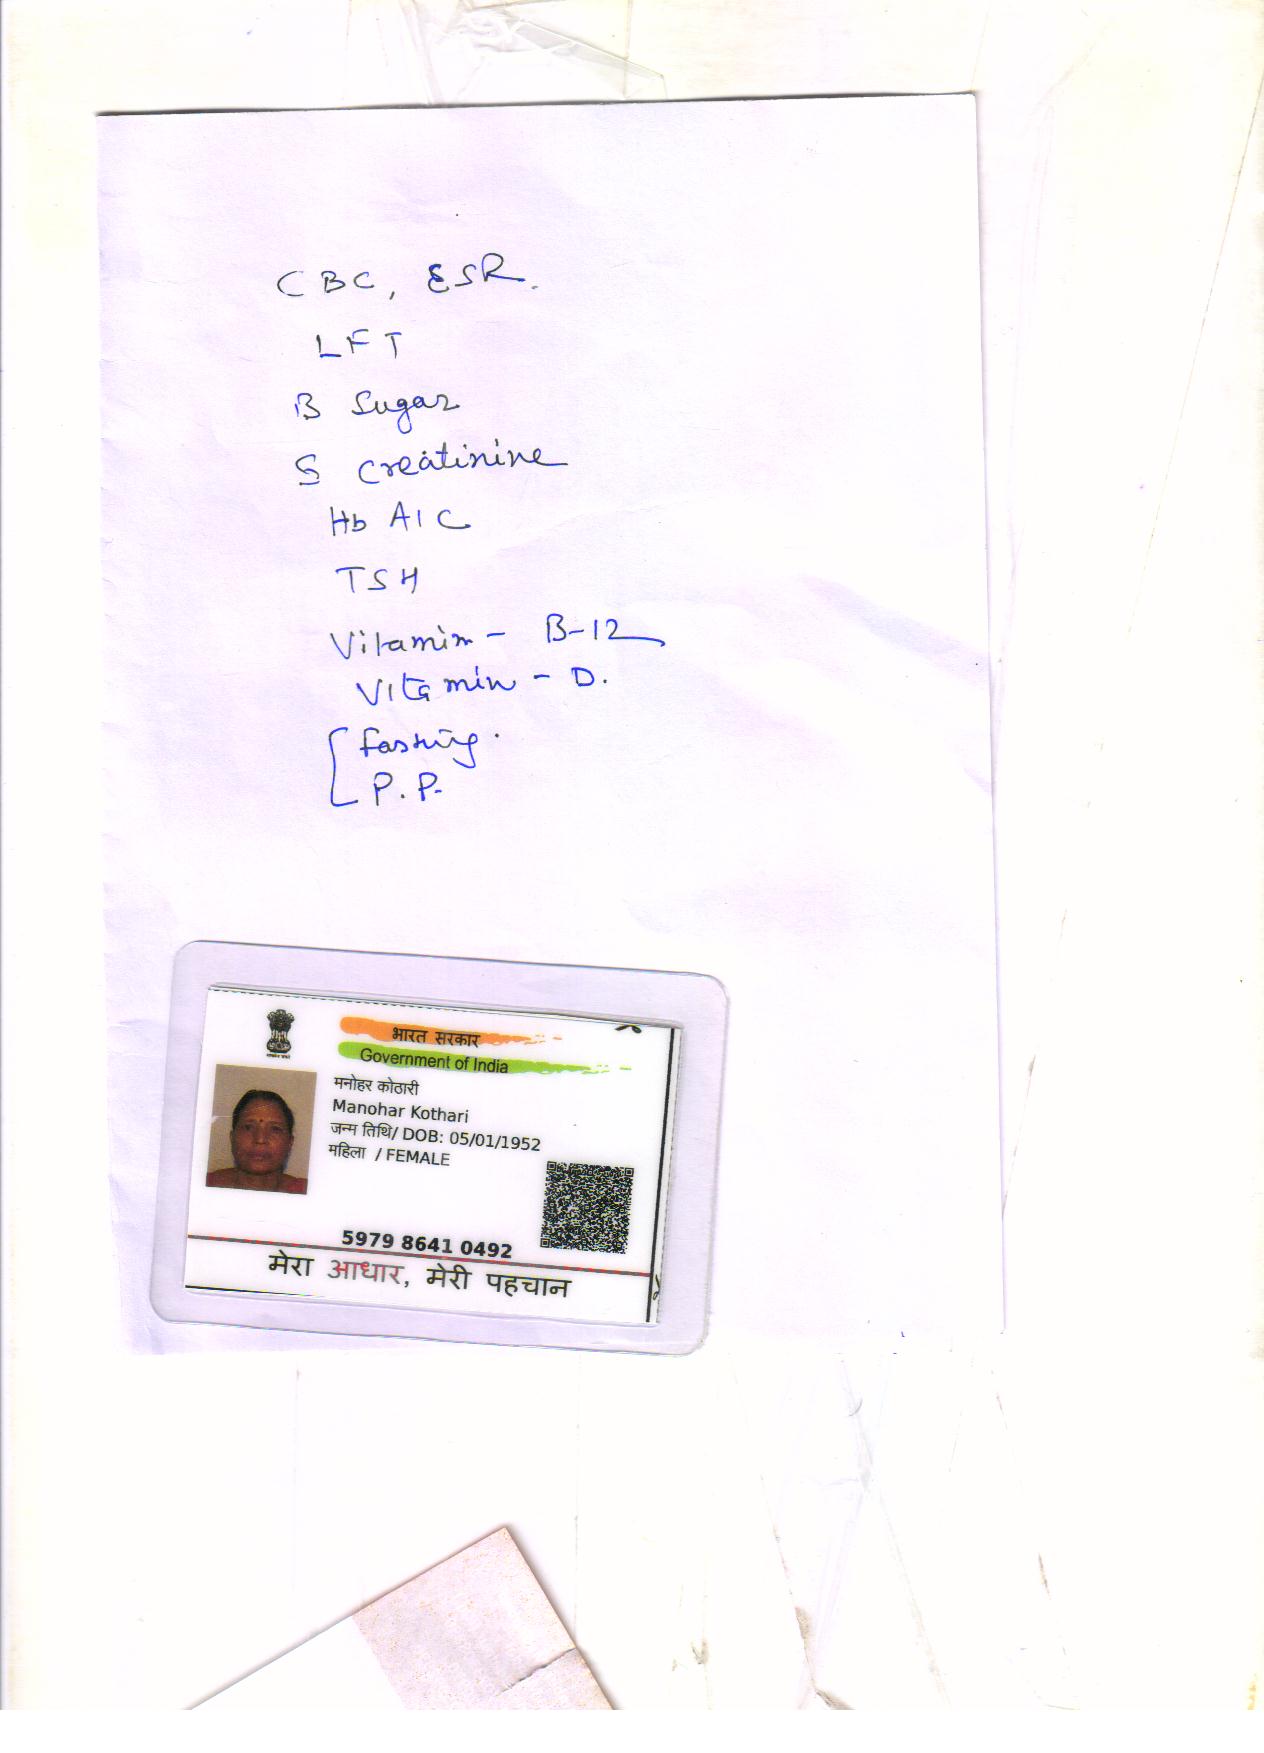 CBC, ESR.
LFT
B Sugar
S creatinine
Hb A1C
TSH
Vitamin - B-12
Vitamin - D.
Fasting.
P.P.
भारत सरकार
Government of India
मनोहर कोठारी
Manohar Kothari
जन्म तिथि/ DOB: 05/01/1952
महिला / FEMALE
5979 8641 0492
मेरा आधार, मेरी पहचान